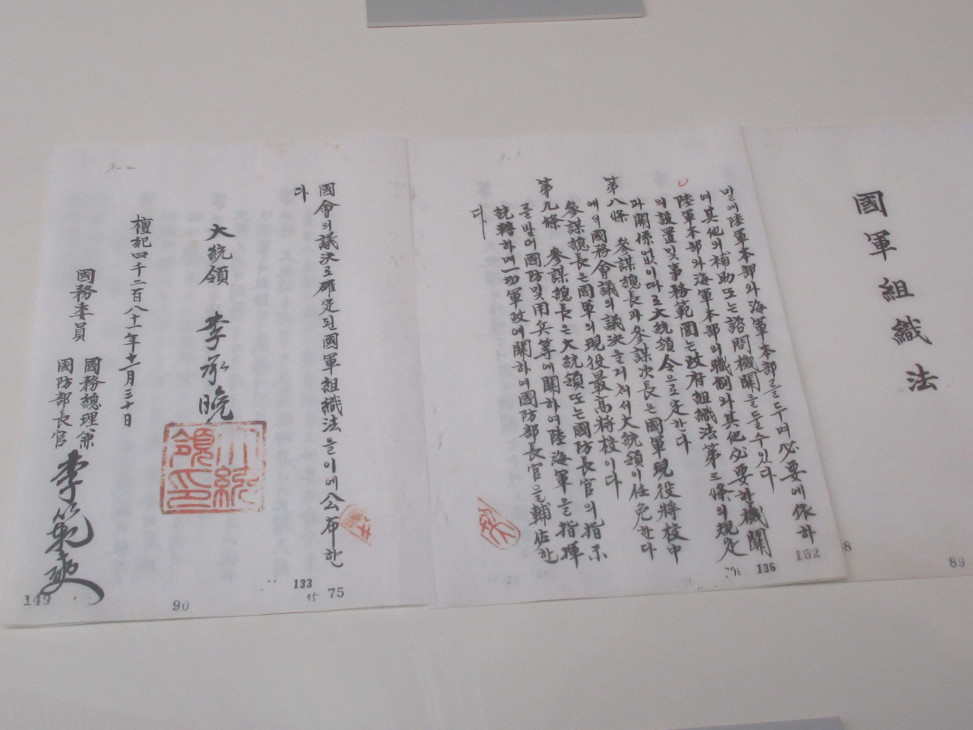 國軍組織法
밑에陸軍本部와海軍本部를두며必要에依하
여其他의補助또는諮問機關을둘수있다
陸軍本部와海軍本部의職制와其他必要한機關
의設置및事務範圍는政府組織法第三條의規定
과關係없이따로大統領令으로定한다
第八條 參謀總長과參謀次長은國軍現役將校中
에서國務會議의議決을거쳐서大統領이任免한다
參謀總長은國軍의現役最高將校이다
第九條 參謀總長은大統領또는國防長官의指示
를받어國防및用兵等에關하여陸海軍을指揮
統轄하며一切軍政에關하여國防部長官을輔佐한
다
國會의議決로確定된國軍組織法을이에公布한
다
大統領 李承晩
大統領印
檀紀四千二百八十一年十一月三十日
國務委員
國務總理兼
國防部長官 李範奭
149
90
133
75
136
162
8
89